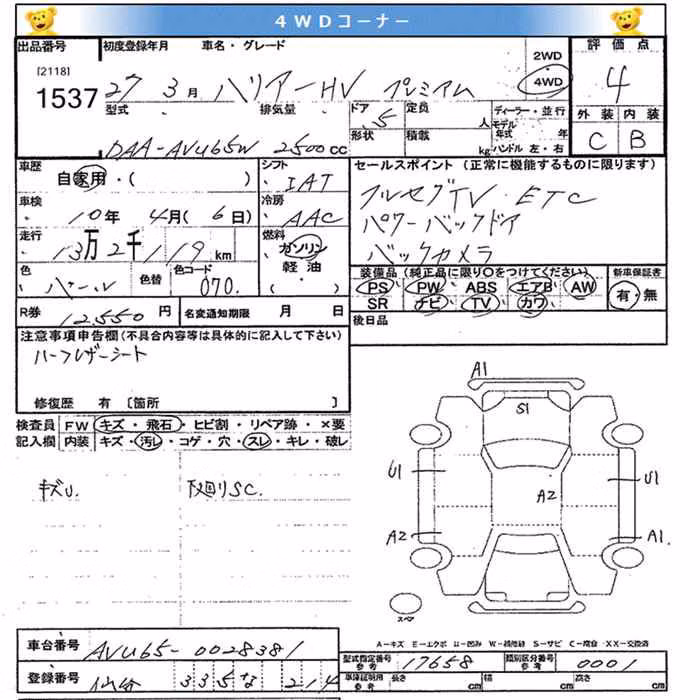 4WDコーナー
出品番号 初度登録年月 車名・グレード 評価点
[2118] 1537
27年 3月 ハリアーHV プレミアム 2WD 4WD 4
型式 排気量 ドア 5 定員 人 ディーラー・並行 外装 内装
形状 積載 kg モデル年式 年 ハンドル 左・右
DAA-AVU65W 2500cc C B
車歴 自家用・( ) シフト IAT
セールスポイント (正常に機能するものに限ります)
フルセグTV・ETC
パワーバックドア
バックカメラ
車検 10年 4月(6日) 冷房 AAC
走行 13万2千119km 燃料 ガソリン 軽油 ( )
色 パール 色替 色コード 070.
装備品 (純正品に限り○をつけてください) 新車保証書
PS PW ABS エアB AW 有・無
SR ナビ TV カワ
R券 12,550円 名変通知期限 月 日
後日品
注意事項申告欄(不具合内容等は具体的に記入して下さい)
ハーフレザーシート
修復歴 有 [箇所 ]
検査員 FW キズ・飛石・ヒビ割・リペア跡・×要
記入欄 内装 キズ・汚レ・コゲ・穴・スレ・キレ・破レ
キズU. 下回りSC.
A1
S1
U1 U1
A2
A2 A1.
スペア
A-キズ E-エクボ U-凹み W-補修跡 S-サビ C-腐食 XX-交換済
車台番号 AVU65-0028381
型式指定番号 参考 17658 類別区分番号 参考 0001
登録番号 仙台 335 な 214
車庫証明用 参考 長さ cm 幅 cm 高さ cm